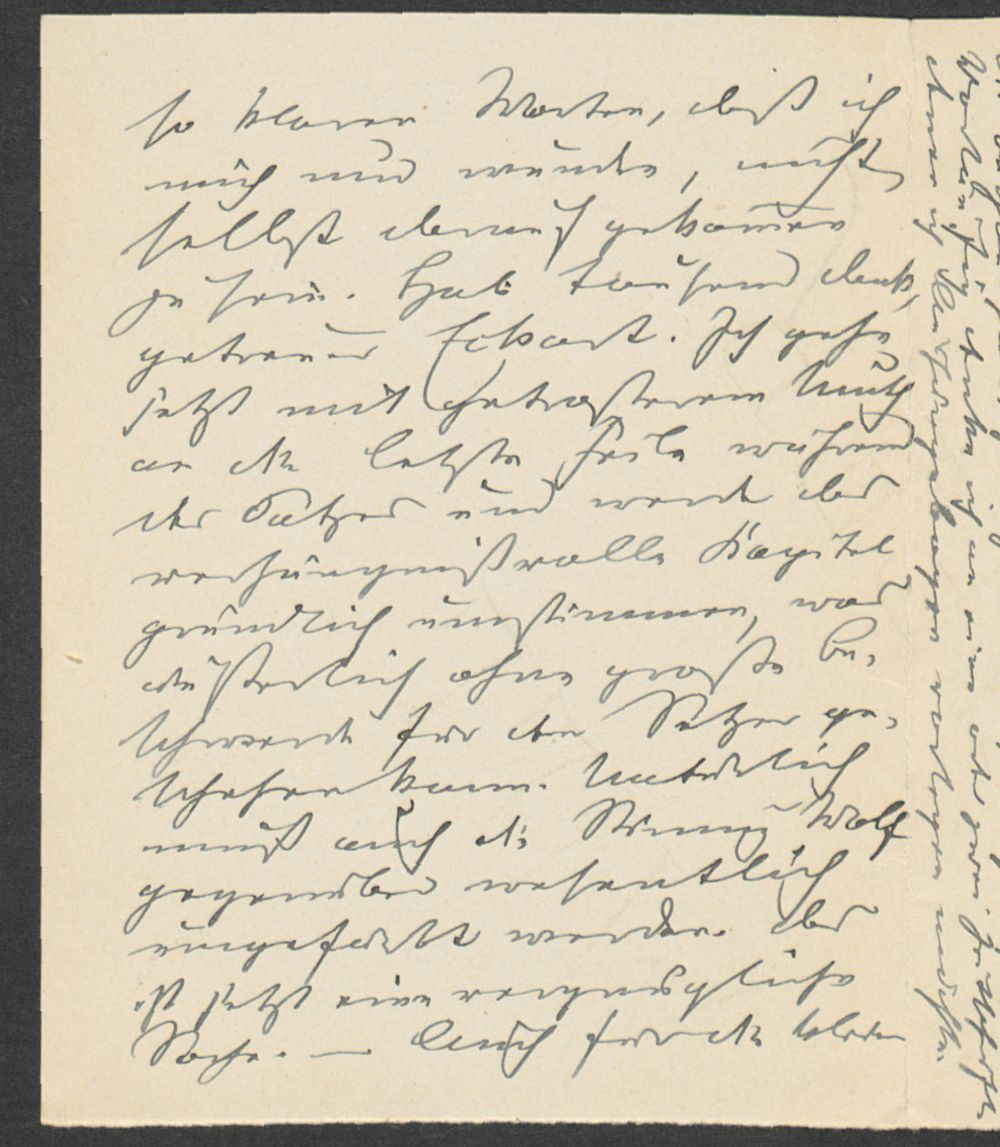 so klaren Worten, daß ich
mich nur wundre, nicht
selbst darauf gekommen
zu sein. Hab tausend Dank,
getreuer Eckart. Ich gehe
jetzt mit getrosterem Muth
an die letzte Feile während
des Satzes und werde das
verhängnißvolle Kapitel
gründlich umstimmen, was
sicherlich ohne große Be-
schwerde für den Setzer ge-
schehen kann. Natürlich
muß auch die Stimmung Wolf
gegenüber wesentlich
umgefärbt werden. Das
ist jetzt eine vergnügliche
Sache. — Auch für die klaren
Worten für
denke ich an eine oder zwei
ich vorlegen möchte.